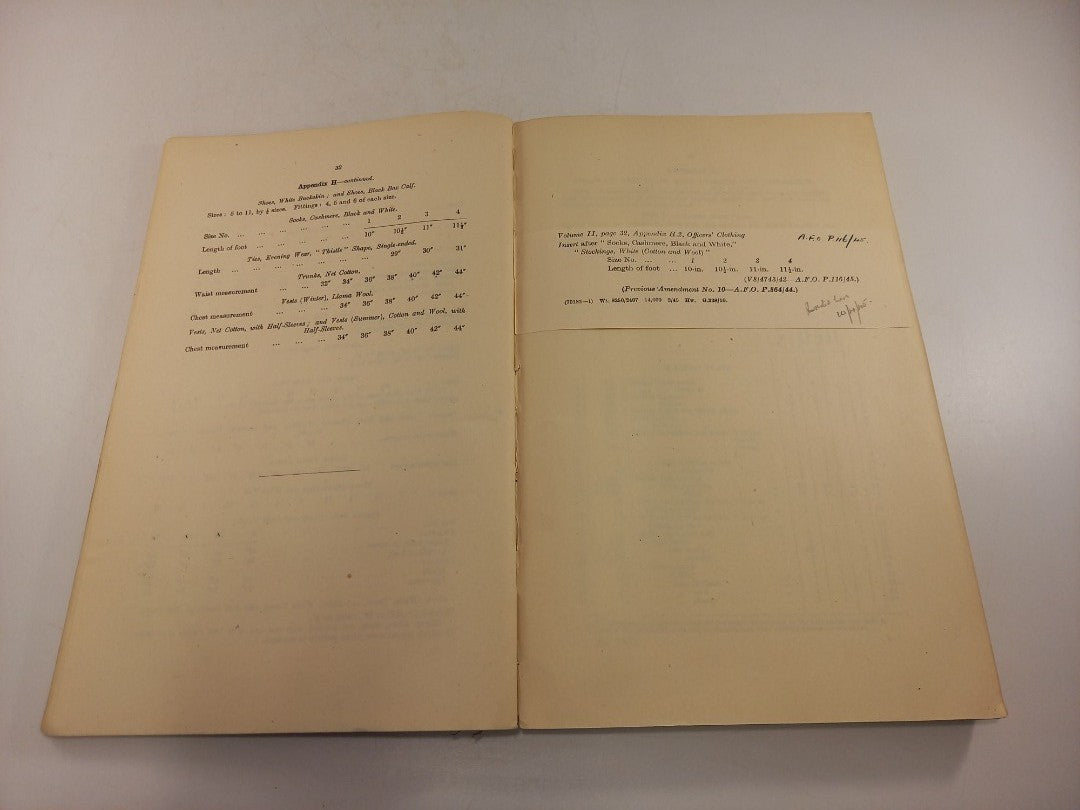 32
Appendix H—continued.
Shoes, White Buckskin; and Shoes, Black Box Calf.
Sizes: 5 to 11, by ½ sizes. Fittings: 4, 5 and 6 of each size.
Socks, Cashmere, Black and White.
Size No. ... ... ... ... ... 1 2 3 4
Length of foot ... ... ... ... ... 10" 10½" 11" 11½"
Ties, Evening Wear, "Thistle" Shape, Single-ended.
Length ... ... ... ... ... ... 29" 30" 31"
Trunks, Net Cotton.
Waist measurement ... ... ... 32" 34" 36" 38" 40" 42" 44"
Vests (Winter), Llama Wool.
Chest measurement ... ... ... 34" 36" 38" 40" 42" 44"
Vests, Net Cotton, with Half-Sleeves; and Vests (Summer), Cotton and Wool, with
Half-Sleeves.
Chest measurement ... ... ... 34" 36" 38" 40" 42" 44"
Volume II, page 32, Appendix H.2, Officers' Clothing
A.F.O P.116/45.
Insert after "Socks, Cashmere, Black and White,"
"Stockings, White (Cotton and Wool)"
Size No. ... ... 1 2 3 4
Length of foot ... 10-in. 10½-in. 11-in. 11½-in.
(V8/4743/42—A.F.O. P.116/45.)
(Previous Amendment No. 10—A.F.O. P.864/44.)
Wt. 14,000 2/45 Hw.